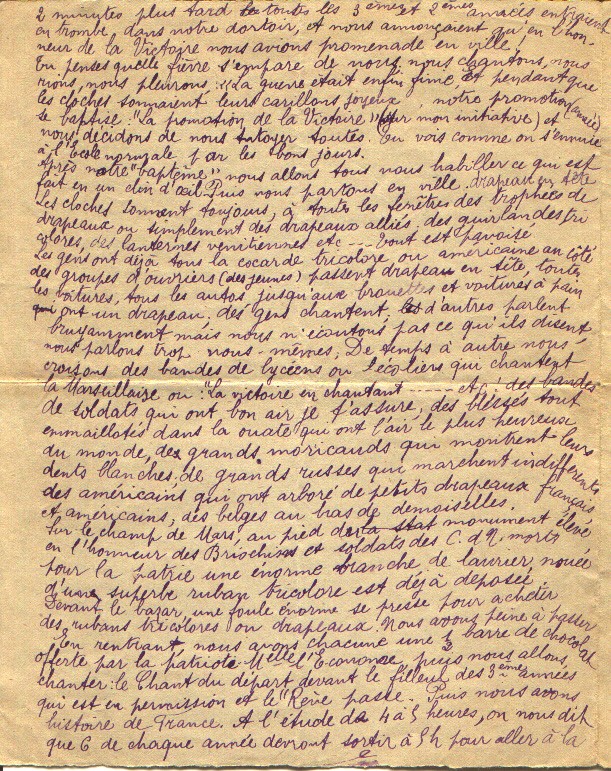 2 minutes plus tard toutes les 3èmes et 2èmes années entraient
en trombe dans notre dortoir, et nous annonçaient qu'en l'hon-
neur de la Victoire nous avions promenade en ville.
Tu penses quelle fierre s'empare de nous, nous chantons, nous
rions, nous pleurons. La guerre était enfin finie, et pendant que
les cloches sonnaient leurs carillons joyeux, notre promotion (année)
se baptise: "La promotion de la Victoire" (sur mon initiative) et
nous décidons de nous tutoyer toutes. Tu vois comme on s'ennuie
à l'Ecole normale par les bons jours.
Après notre "baptême" nous allons tous nous habiller ce qui est
fait en un clin d'œil. Puis nous partons en ville drapeau en tête
Les cloches sonnent toujours, à toutes les fenêtres des trophées de
drapeaux ou simplement des drapeaux alliés, des guirlandes tri
colores, des lanternes venitiennes etc --- tout est pavoisé
Les gens ont déjà tous la cocarde tricolore ou américaine au côté
des groupes d'ouvriers (des jeunes) passent drapeau en tête, toutes
les voitures, tous les autos jusqu'aux brouettes et voitures à pain
qui ont un drapeau. des gens chantent, d'autres parlent
bruyamment mais nous n'écoutons pas ce qu'ils disent,
nous parlons trop nous-mêmes. De temps à autre nous
croisons des bandes de lycéens ou d'écoliers qui chantent
la Marseillaise ou: "La victoire en chantant ------ etc! des bandes
de soldats qui ont bon air je t'assure, des blessés tout
emmaillotés dans la ouate qui ont l'air le plus heureux
du monde, des grands moricauds qui montrent leurs
dents blanches, de grands russes qui marchent indifférents
des américains qui ont arboré de petits drapeaux français
et américains, des belges au bras de demoiselles.
Sur le champ de Mars, au pied de monument élevé
en l'honneur des Briochins et soldats des C. d N. morts
pour la patrie une énorme branche de laurier, nouée
d'une superbe ruban tricolore est déjà déposée
Devant le bazar, une foule énorme se presse pour acheter
des rubans tricolores ou drapeaux. Nous avons peine à passer
En rentrant, nous avons chacune une barre de chocolat
offerte par la patriote Melle l'Econome, puis nous allons,
chanter: le Chant du départ devant le filleul des 3èmes années
qui est en permission et le "Rêve passe. Puis nous avons
histoire de France. A l'étude de 4 à 5 heures, on nous dit
que 6 de chaque année devront sortir à 5h pour aller à la
2